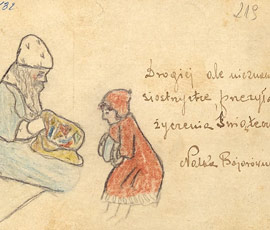 219
Drogiej ale nieznan
siostrzyczce, przesyła
życzenia Świątecz
Natka